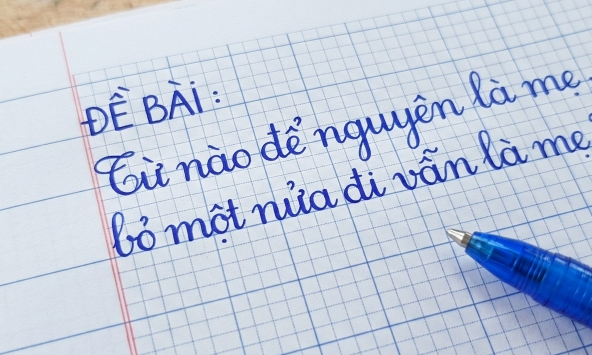 ĐỀ BÀI:
Từ nào để nguyên là mẹ
bỏ một nửa đi vẫn là mẹ